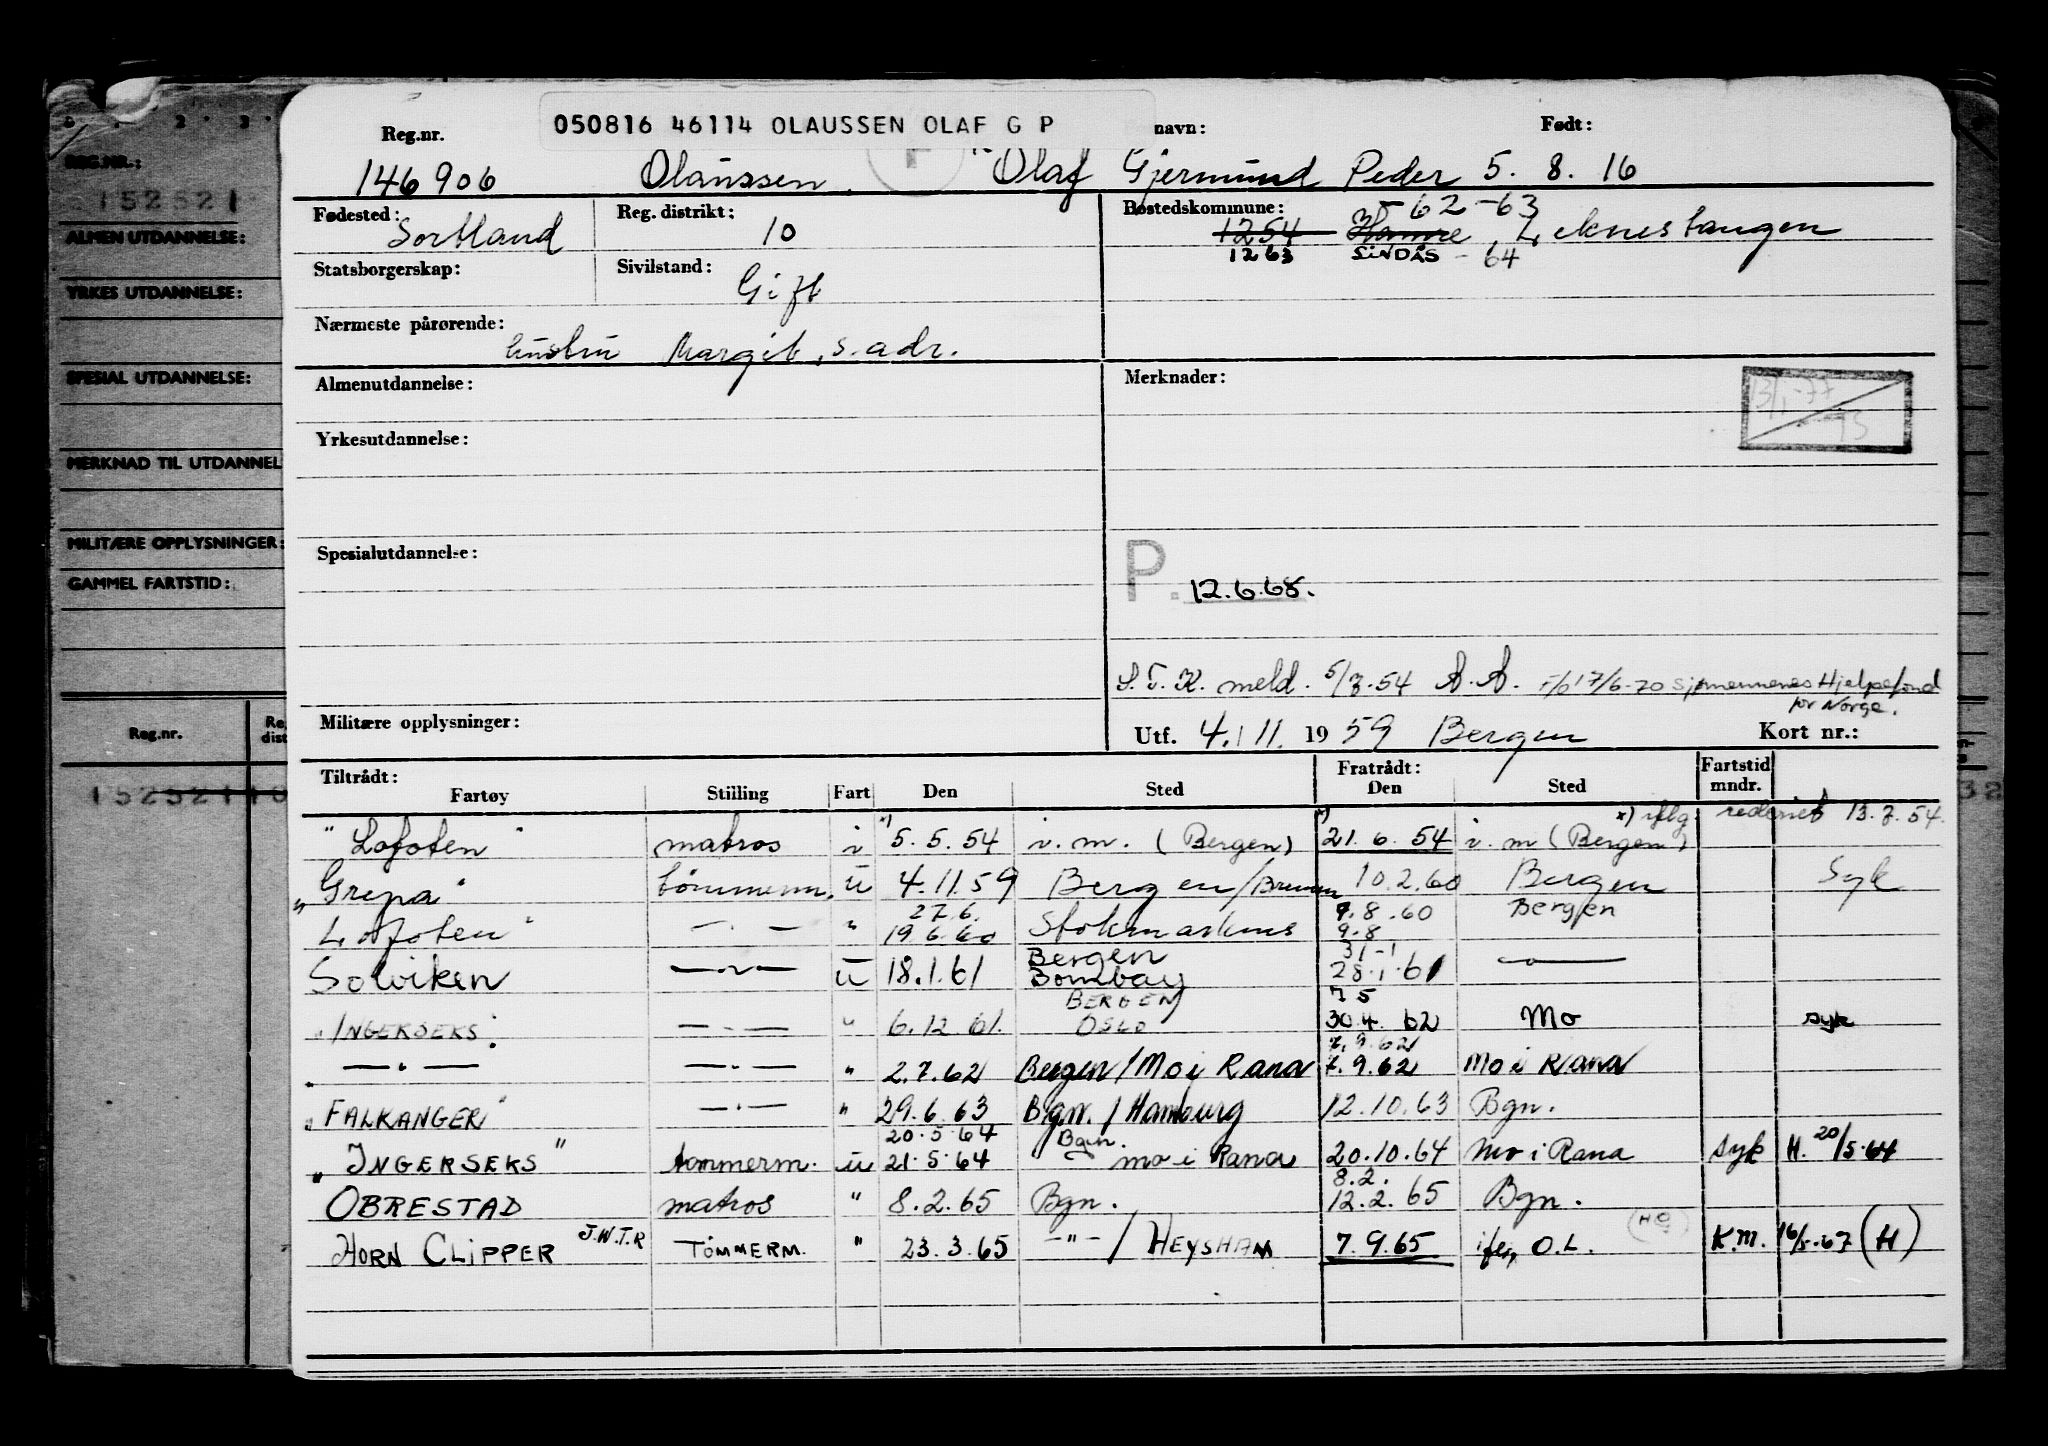 050816 46114 OLAUSSEN OLAF G P
Reg.nr. navn: Født:
146906 Olaussen. Olaf Gjermund Peder 5. 8. 16
Fødested: Sortland Reg. distrikt: 10
Bostedskommune: - 62 - 63
1254 Hamre Leknestangen
1263 SINDÅS - 64
Statsborgerskap: Sivilstand: Gift
Nærmeste pårørende: hustru Margit, s. adr.
Almenutdannelse: Merknader:
13/1-77
75
Yrkesutdannelse:
Spesialutdannelse:
P. 12.6.68.
S.T.K. meld. 5/7.54 A.A. F/b 17/6-70 Sjømennenes Hjelpefond
for Norge.
Militære opplysninger: Utf. 4. 11. 1959 Bergen Kort nr.:
Tiltrådt: Fratrådt: Fartstid
Fartøy Stilling Fart Den Sted Den Sted mndr.
x) x) x) iflg rederiet 13.7.54.
"Lofoten" matros i 5.5.54 i.m. (Bergen) 21.6.54 i.m (Bergen)
"Grepa" tømmerm. u 4.11.59 Bergen/Bremen 10.2.60 Bergen Syk
27.6. 9.8.60 Bergen
Lofoten" — . — " 19.6.60 Stokmarknes 9.8
Bergen 31-1
Solviken — " — u 18.1.61 Bombay 28.1.61 — " —
BERGEN 7 5
"INGERSEKS" — . — " 6.12 61. OSLO 30.4. 62 Mo syk
7.9.62
" — " — — . — " 2.7.62 Bergen/Mo i Rana 7.9.62 Mo i Rana
"FALKANGER" — " — " 29.6.63 Bgn./Hamburg 12.10.63 Bgn.
20.5.64 Bgn.
"INGERSEKS" tømmerm. u 21.5.64 mo i Rana 20.10.64 Mo i Rana syk H. 20/5.64
8.2.
OBRESTAD matros " 8.2.65 Bgn. 12.2.65 Bgn.
HORN CLIPPER J.W.T.R TØMMERM. " 23.3.65 — " — / HEYSHAM 7.9.65 O.L. K.M. 16/5.67 (H)
REG.NR.:
152521
ALMEN UTDANNELSE:
YRKES UTDANNELSE:
SPESIAL UTDANNELSE:
MERKNAD TIL UTDANNEL
MILITÆRE OPPLYSNINGER:
GAMMEL FARTSTID:
Reg.nr. Re dist
152521 10
32